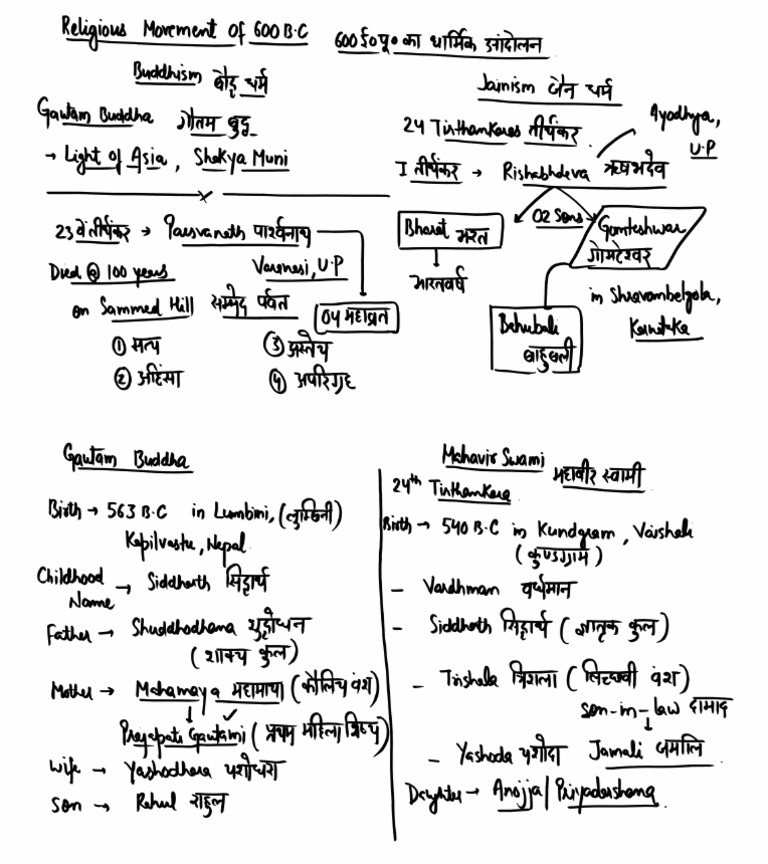 Religious Movement of 600 B.C 600 ई०पू० का धार्मिक आंदोलन
Buddhism बौद्ध धर्म
Jainism जैन धर्म
Gautam Buddha गौतम बुद्ध
→ Light of Asia, Shakya Muni
24 Tirthankaras तीर्थंकर
Ayodhya,
U.P
I तीर्थंकर → Rishabhdeva ऋषभदेव
02 Sons
Bharat भरत
भारतवर्ष
Gomteshwar
गोमटेश्वर
in Shravanbelgola,
Karnataka
Bahubali
बाहुबली
23 वें तीर्थंकर → Parsvanath पार्श्वनाथ
Died @ 100 years
Varanasi, U.P
on Sammed Hill सम्मेद पर्वत
04 महाव्रत
① सत्य ③ अस्तेय
② अहिंसा ④ अपरिग्रह
Gautam Buddha
Birth → 563 B.C in Lumbini, (लुम्बिनी)
Kapilvastu, Nepal
Childhood Name → Siddharth सिद्धार्थ
Father → Shuddhodhana शुद्धोधन
(शाक्य कुल)
Mother → Mahamaya महामाया (कौलिय वंश)
Prajapati Gautami (प्रथम महिला शिष्य)
Wife → Yashodhara यशोधरा
Son → Rahul राहुल
Mahavir Swami महावीर स्वामी
24th Tirthankara
Birth → 540 B.C in Kundgram, Vaishali
(कुण्डग्राम)
- Vardhman वर्धमान
- Siddharth सिद्धार्थ (ज्ञातृक कुल)
- Trishala त्रिशला (लिच्छवी वंश)
son-in-law दामाद
- Yashoda यशोदा Jamali जमालि
Daughter → Anojja/Priyadarshana